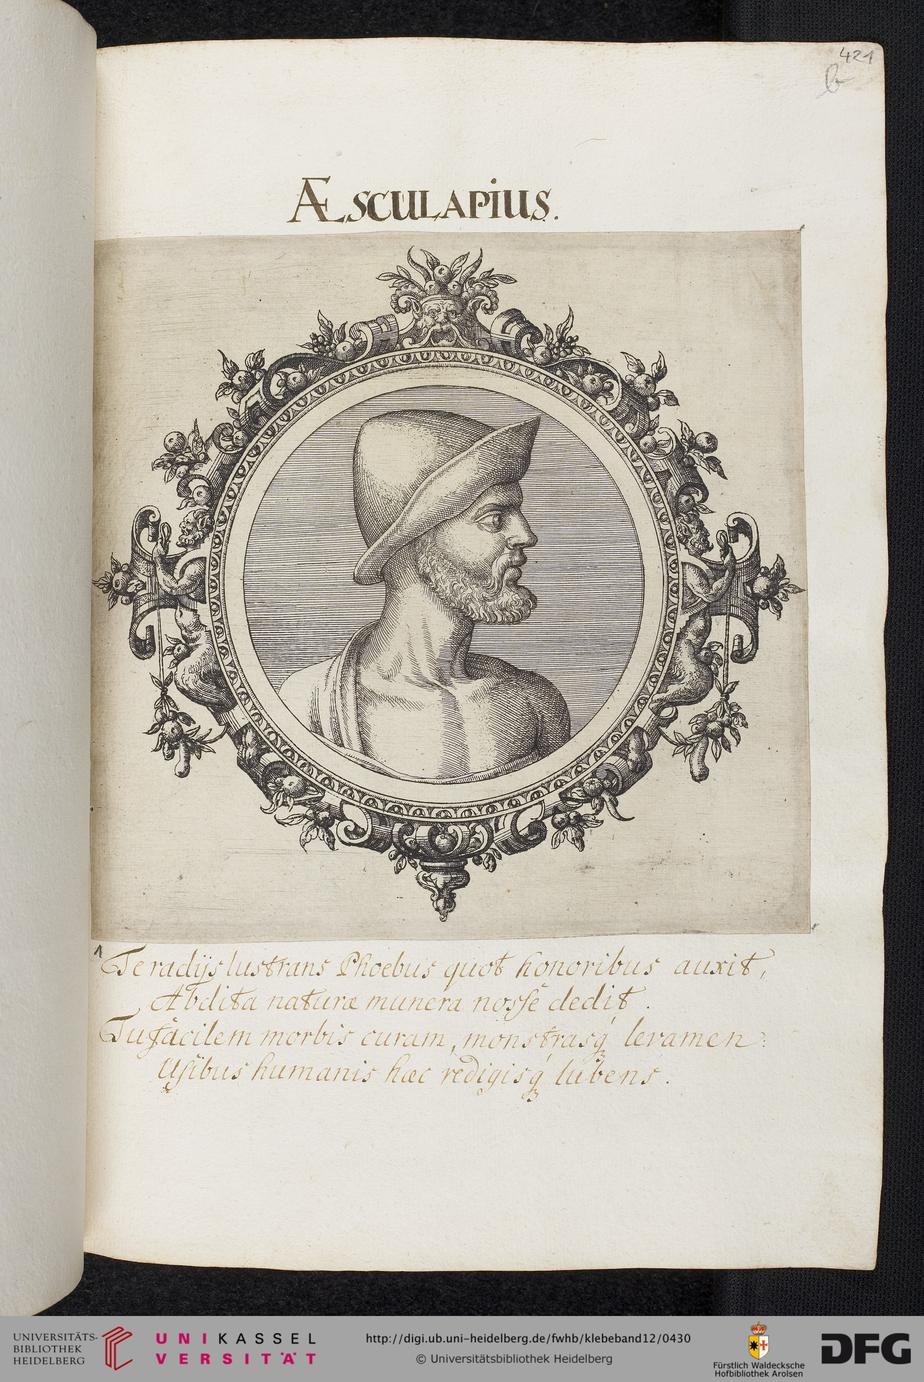 421
b
ÆSCULAPIUS.
Te radijs lustrans Phoebus quot honoribus auxit,
Abdita naturæ munera nosse dedit.
Tu facilem morbis curam, monstrasq́ levamen:
Usibus humanis hæc redigisq́ lubens.
UNIVERSITÄTS-
BIBLIOTHEK
HEIDELBERG
UNIKASSEL
VERSITÄT
http://digi.ub.uni-heidelberg.de/fwhb/klebeband12/0430
© Universitätsbibliothek Heidelberg
Fürstlich Waldecksche
Hofbibliothek Arolsen
DFG